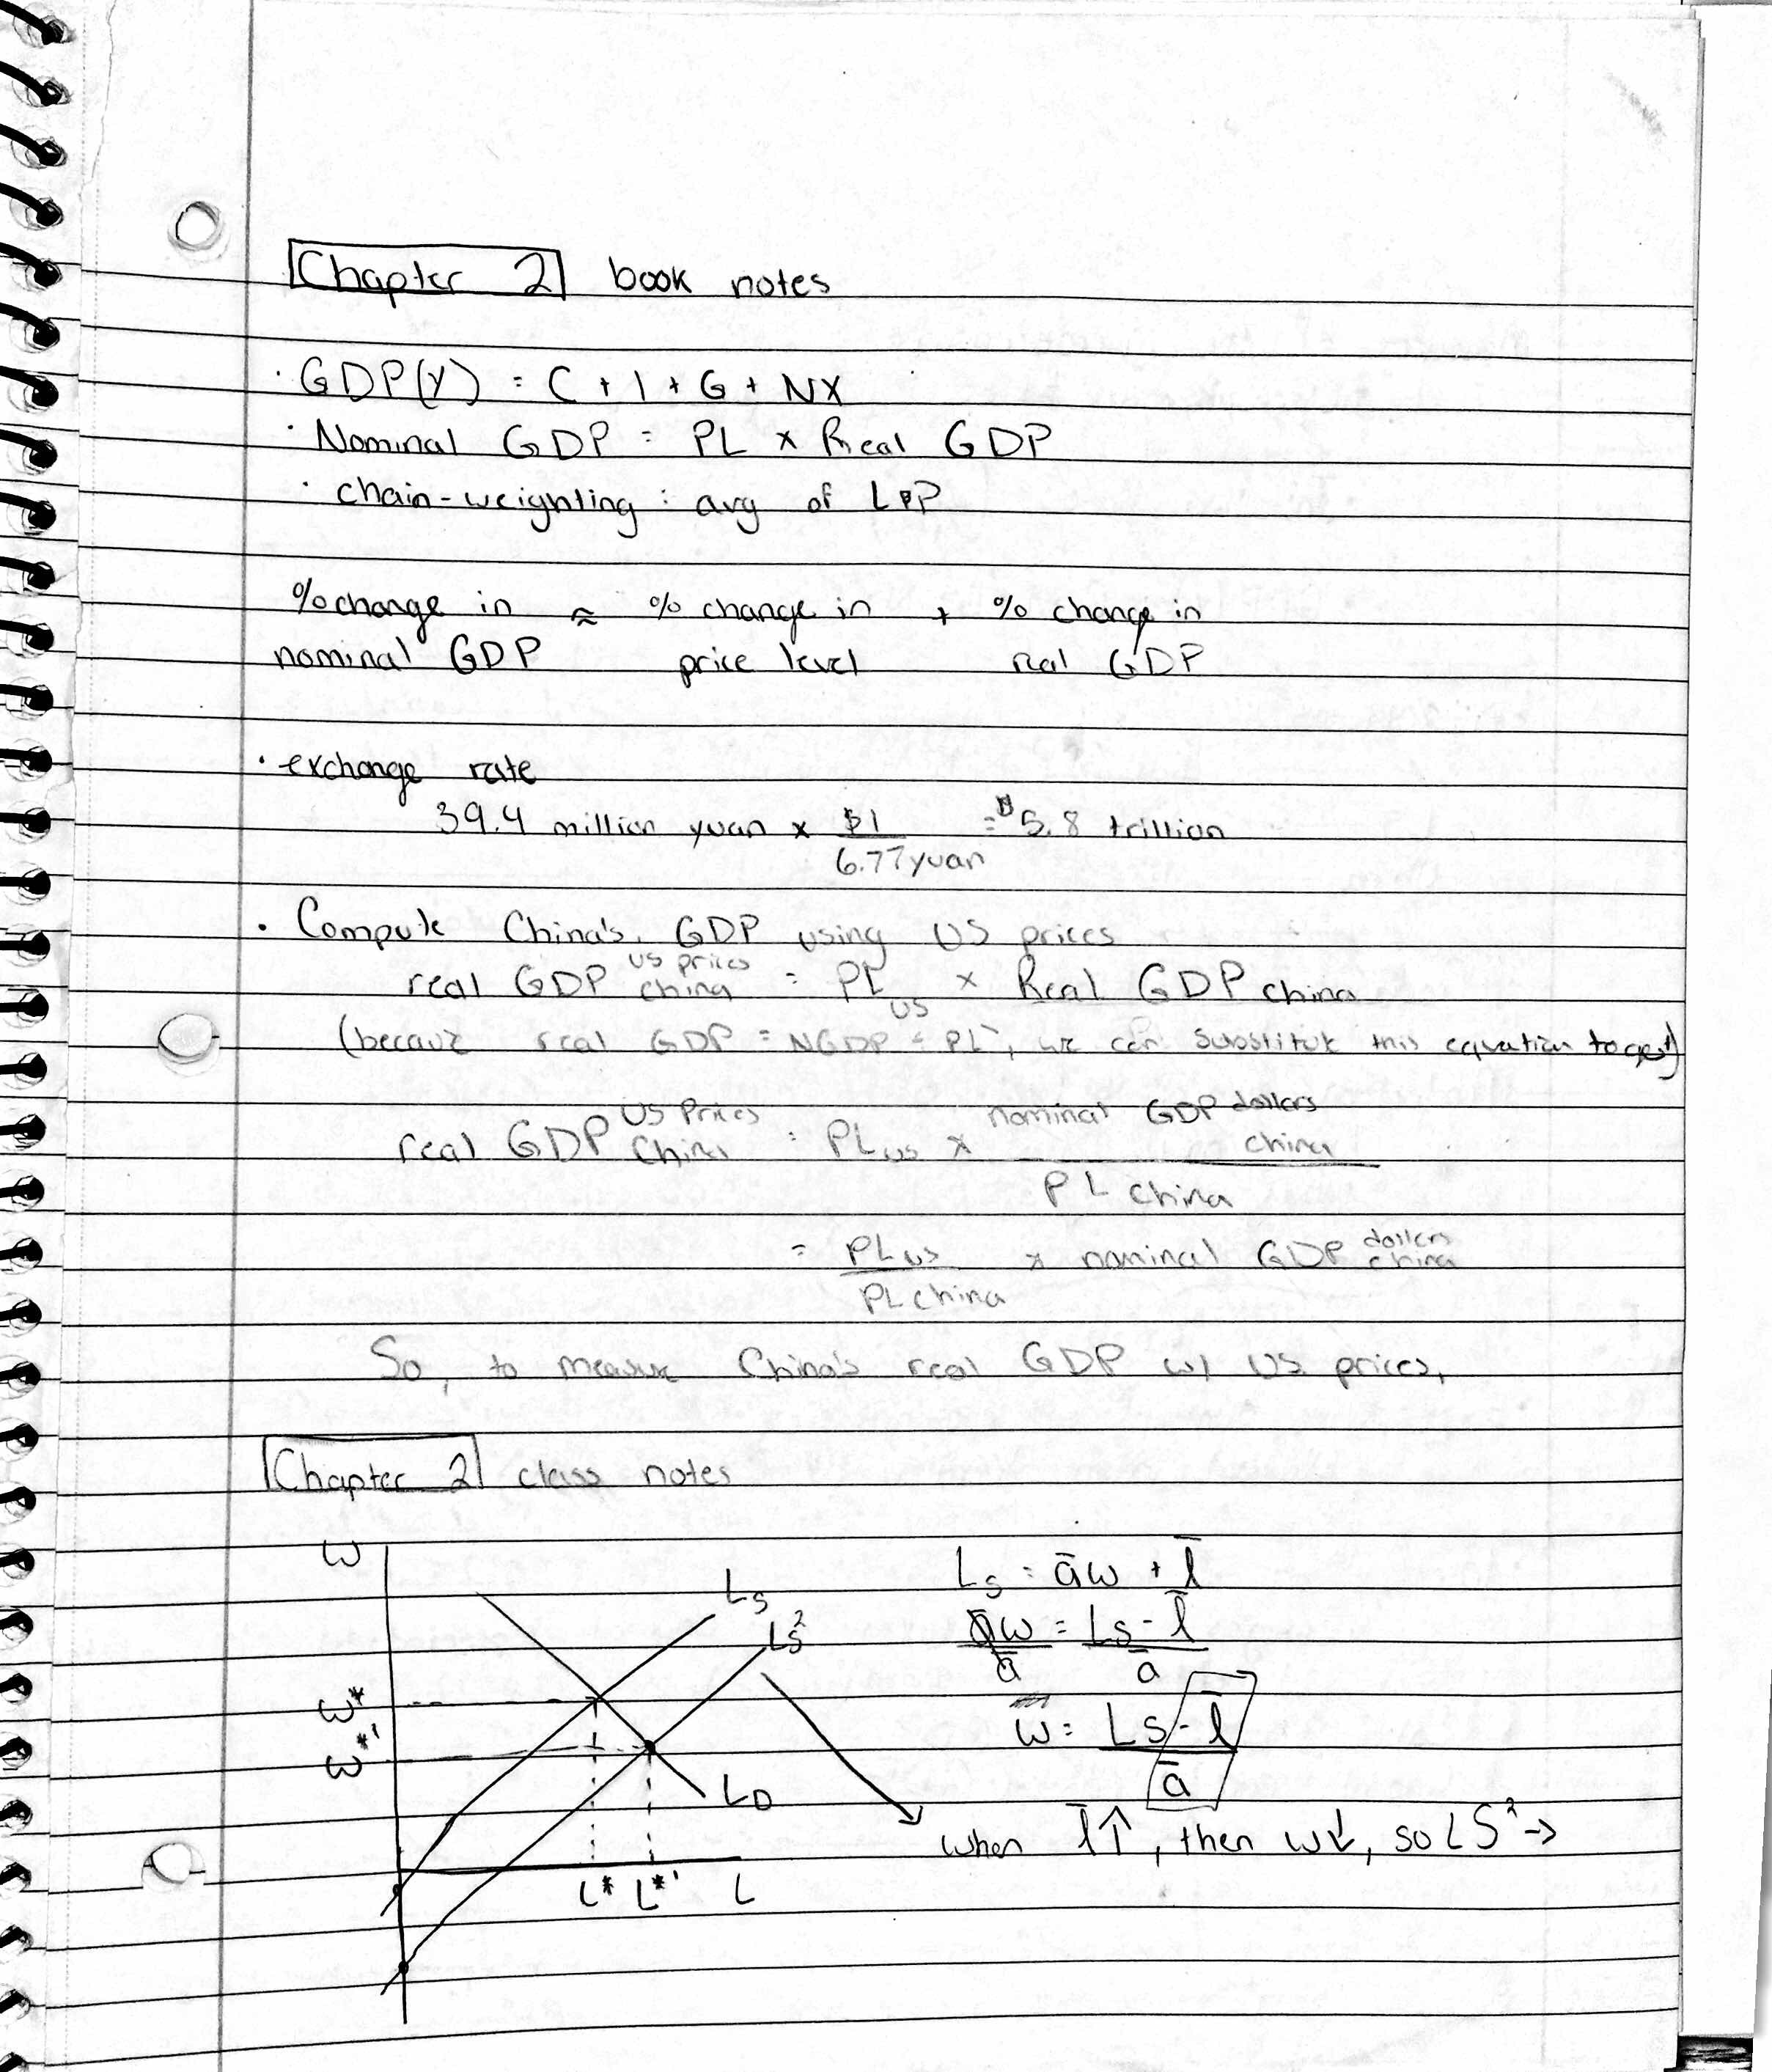 Chapter 2 book notes
· GDP(Y) = C + I + G + NX
· Nominal GDP = PL x Real GDP
· chain-weighting : avg of L&P
% change in ≈ % change in + % change in
nominal GDP price level real GDP
· exchange rate
39.4 million yuan x $1 = $5.8 trillion
6.77 yuan
· Compute China's GDP using US prices
real GDP US prices China = PL US x Real GDP China
(because real GDP = NGDP ÷ PL, we can substitute this equation to get)
real GDP US Prices China = PL US x nominal GDP dollars China
PL China
= PL US x nominal GDP dollars China
PL China
So, to measure China's real GDP w/ US prices,
Chapter 2 class notes
w
Ls
Ls²
w*
w*'
LD
L* L*' L
Ls = āw + l̄
āw = Ls - l̄
ā ā
w = Ls - l̄
ā
when l̄↑, then w↓, so LS² →